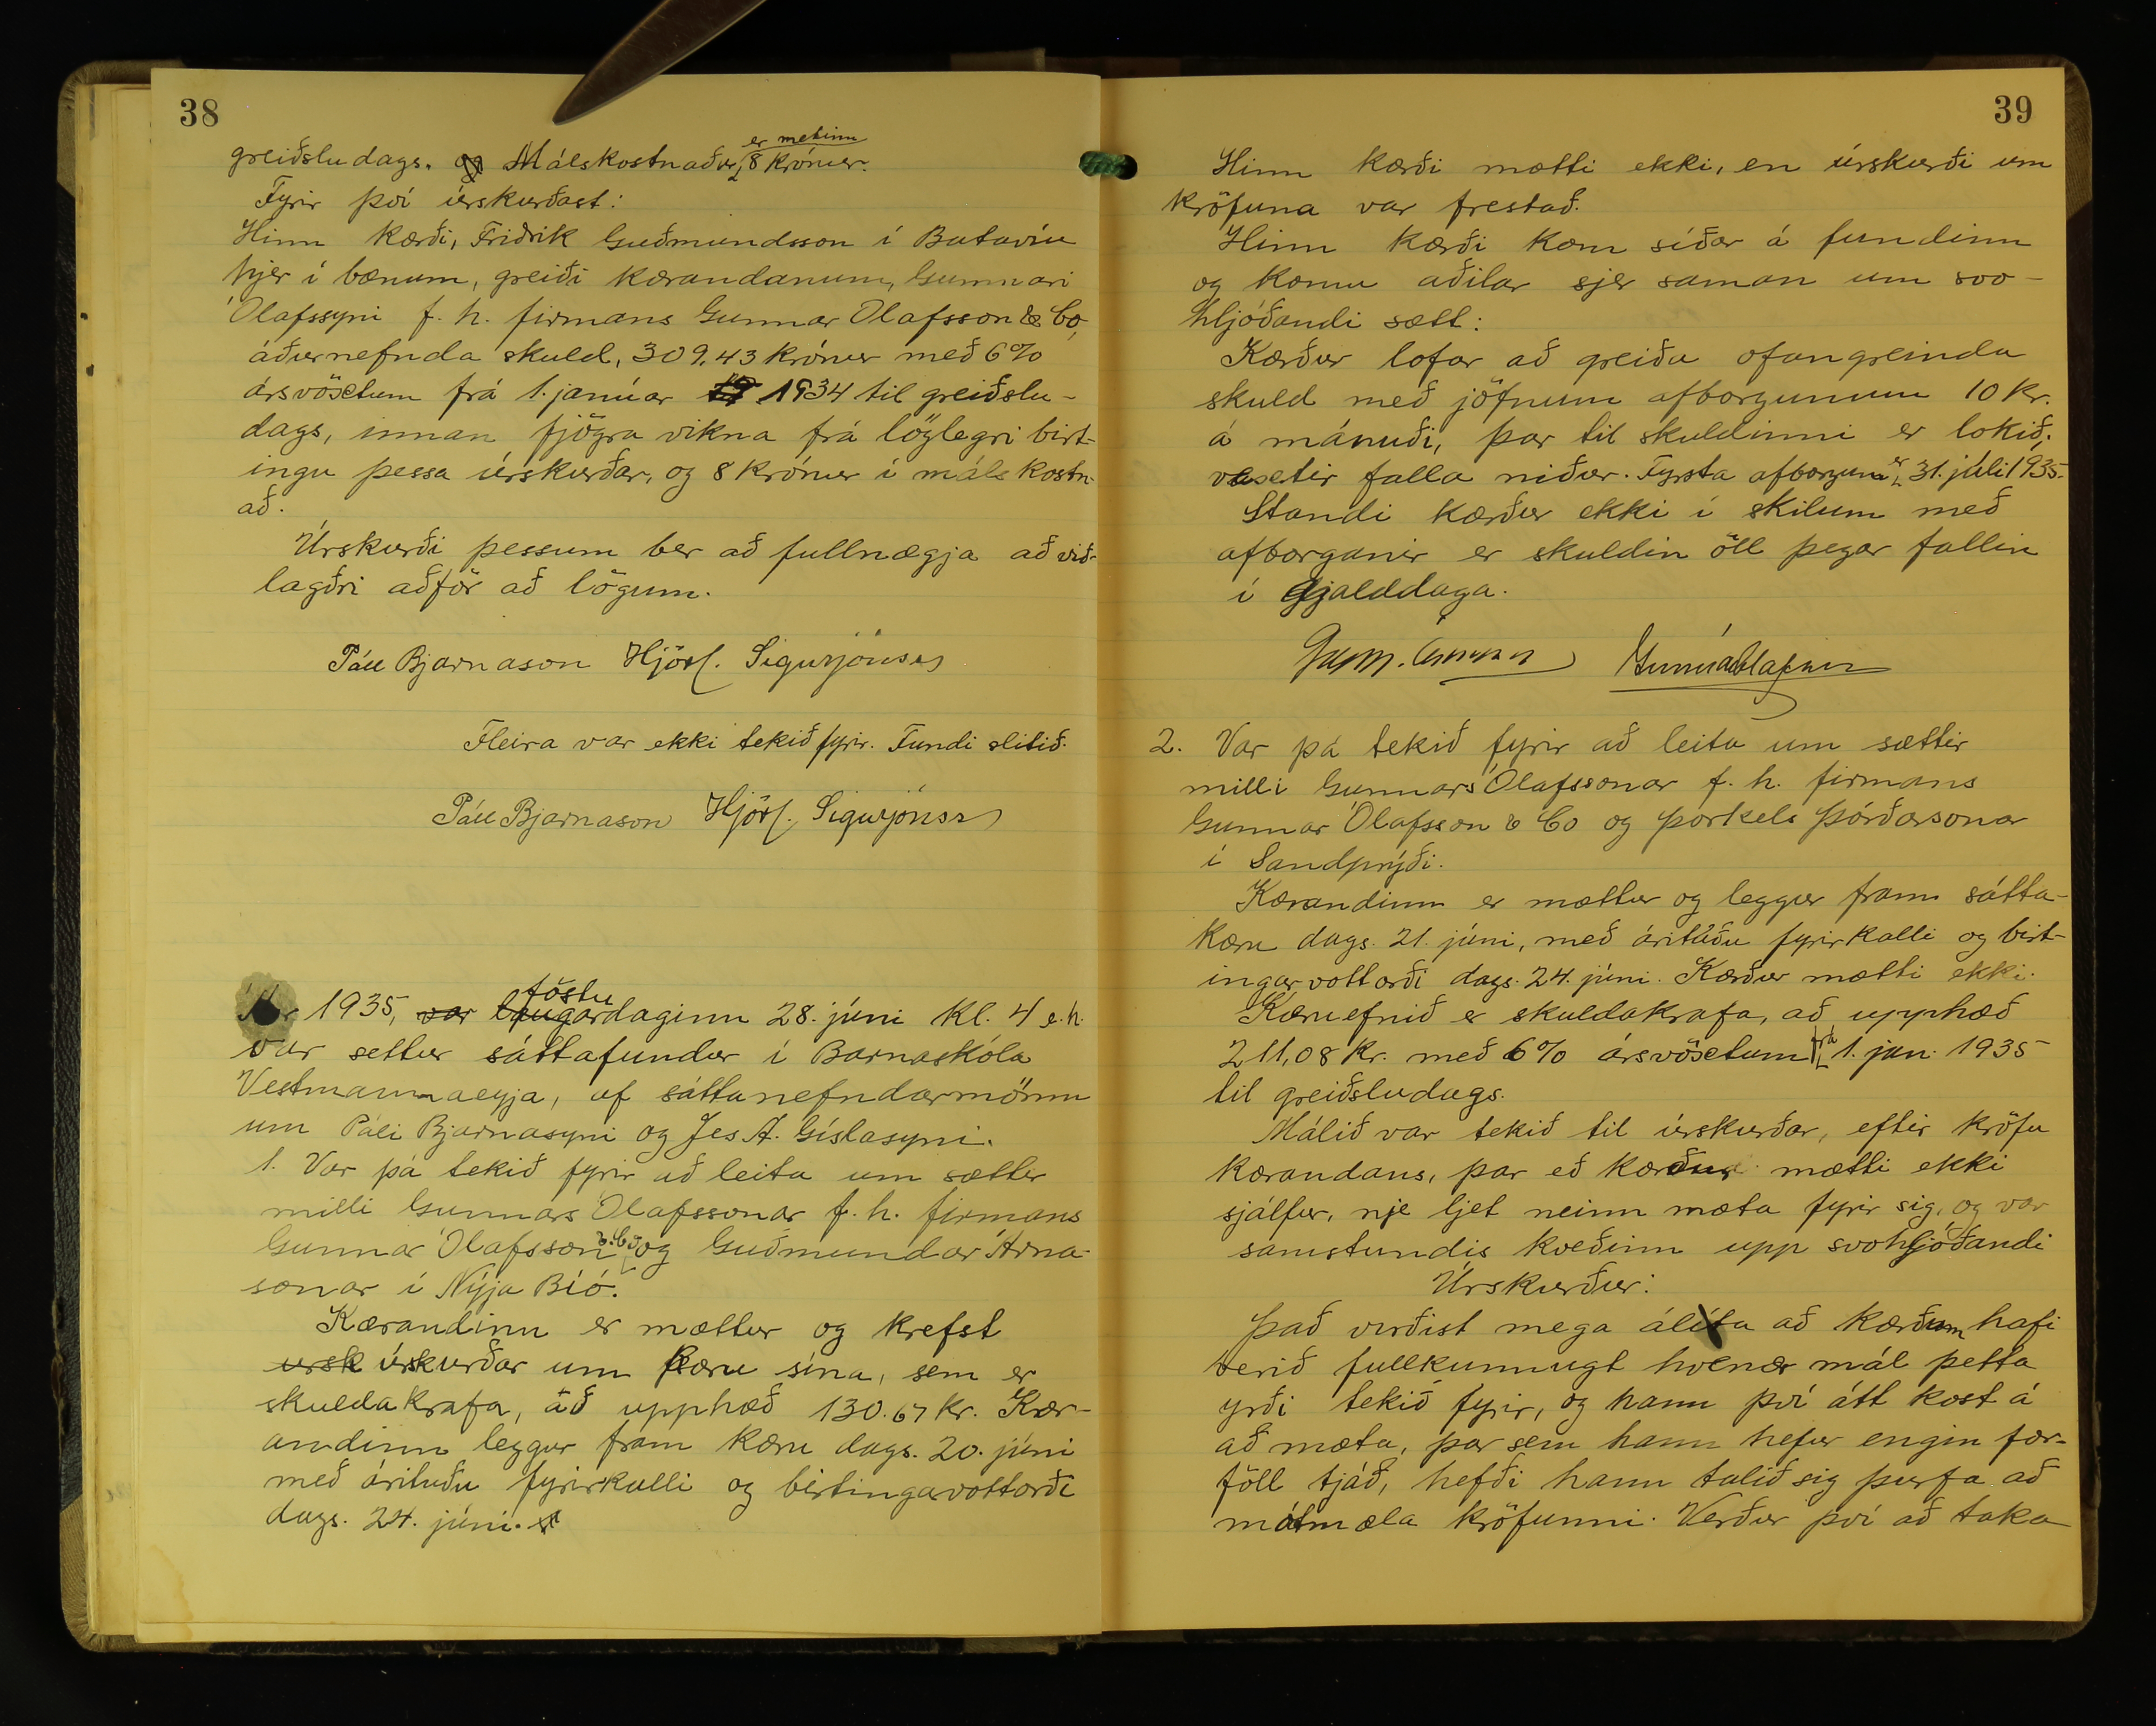 38
greiðsludags. Málskostnaður er metinn 8 krónur.
Fyrir því úrskurðast:
Hinn kærði, Friðrik Guðmundsson í Batavíu
hjer í bænum, greiði kærandanum, Gunnari
Ólafssyni f. h. firmans Gunnar Ólafsson & Co,
áðurnefnda skuld, 309,43 krónur með 6%
ársvöxtum frá 1. janúar 1934 til greiðslu-
dags, innan fjögra vikna frá löglegri birt-
ingu þessa úrskurðar, og 8 krónur í málskostn-
að.
Úrskurði þessum ber að fullnægja að við-
lagðri aðför að lögum.
Páll Bjarnason Hjörl. Sigurjónsson
Fleira var ekki tekið fyrir. Fundi slitið.
Páll Bjarnason Hjörl. Sigurjónsson
Ár 1935, var laugardaginn föstu 28. júni kl. 4 e.h.
var settur sáttafundur í Barnaskóla
Vestmannaeyja, af sáttanefndarmönn
um Páli Bjarnasyni og Jes A. Gíslasyni.
1. Var þá tekið fyrir að leita um sættir
milli Gunnars Ólafssonar f. h. firmans
Gunnar Ólafsson & Co og Guðmundar Árna-
sonar í Nýja Bíó.
Kærandinn er mættur og krefst
ursk úrskurðar um kæru sína, sem er
skuldakrafa, að upphæð 130.67 kr. Kær-
andinn leggur fram kæru dags. 20. júni
með árituðu fyrirkalli og birtingarvottorði
dags. 24. júni.
39
Hinn kærði mætti ekki, en úrskurði um
kröfuna var frestað.
Hinn kærði kom síðar á fundinn
og komu aðilar sjer saman um svo-
hljóðandi sætt:
Kærður lofar að greiða ofangreinda
skuld með jöfnum afborgunum 10 kr.
á mánuði, þar til skuldinni er lokið.
vextir falla niður. Fyrsta afborgun er 31. júli 1935.
Standi kærður ekki í skilum með
afborganir er skuldin öll þegar fallin
í gjalddaga.
Gunnar Ólafsson
2. Var þá tekið fyrir að leita um sættir
milli Gunnars Ólafssonar f. h. firmans
Gunnar Ólafsson & Co og Þorkels Þórðarsonar
í Sandprýði.
Kærandinn er mættur og leggur fram sátta-
kæru dags. 21. júni, með árituðu fyrirkalli og birt-
ingarvottorði dags. 24. júni. Kærður mætti ekki.
Kæruefnið er skuldakrafa, að upphæð
211,08 kr. með 6% ársvöxtum frá 1. jan. 1935
til greiðsludags.
Málið var tekið til úrskurðar, eftir kröfu
kærandans, þar eð kærður mætti ekki
sjálfur, nje ljet neinn mæta fyrir sig, og var
samstundis kveðinn upp svohljóðandi
Úrskurður:
Það virðist mega álíta að kærðum hafi
verið fullkunnugt hvenær mál þetta
yrði tekið fyrir, og hann því átt kost á
að mæta, þar sem hann hefur engin for-
föll tjáð, hefði hann talið sig þurfa að
mótmæla kröfunni. Verður því að taka